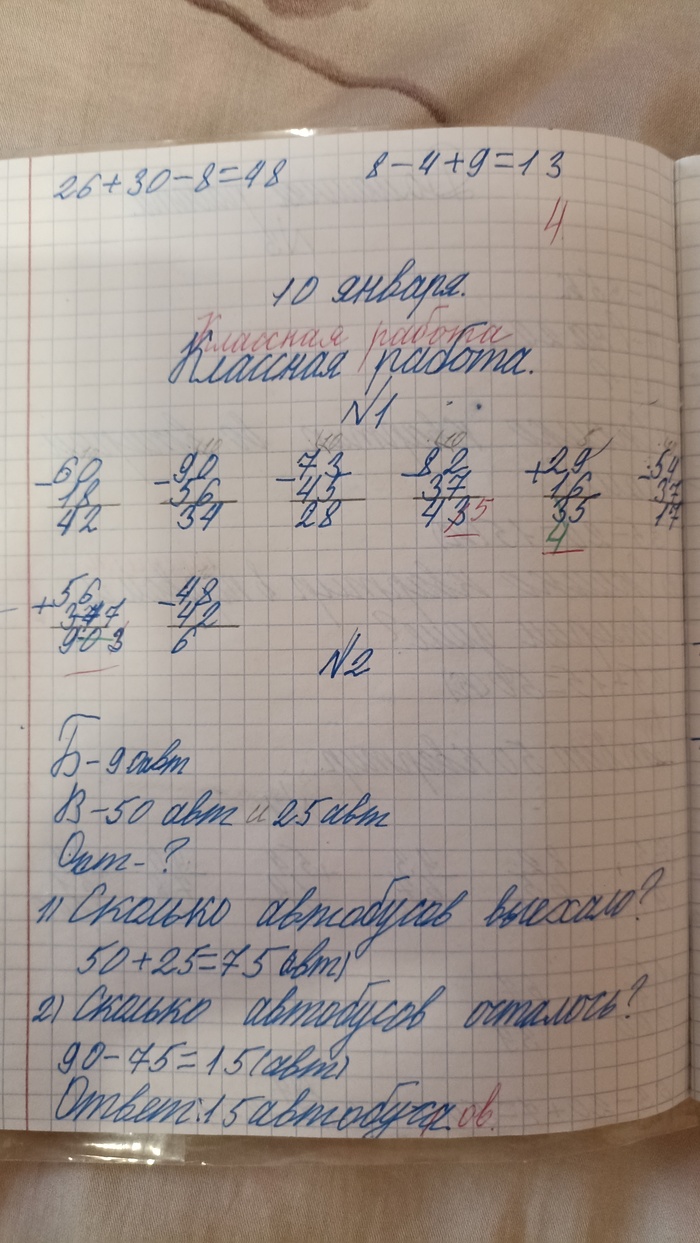 26+30-8=48 8-4+9=13
4
10 января.
Классная работа
Классная работа.
N1
-60 -90 -73 -82 +29 -54
18 56 45 37 16 37
42 34 28 43 5 35 17
4
+56 -48
347 42
903 6
N2
Б-90авт
В-50 авт и 25авт
Ост-?
1) Сколько автобусов выехало?
50+25=75(авт)
2) Сколько автобусов осталось?
90-75=15(авт)
Ответ:15автобуса ов.